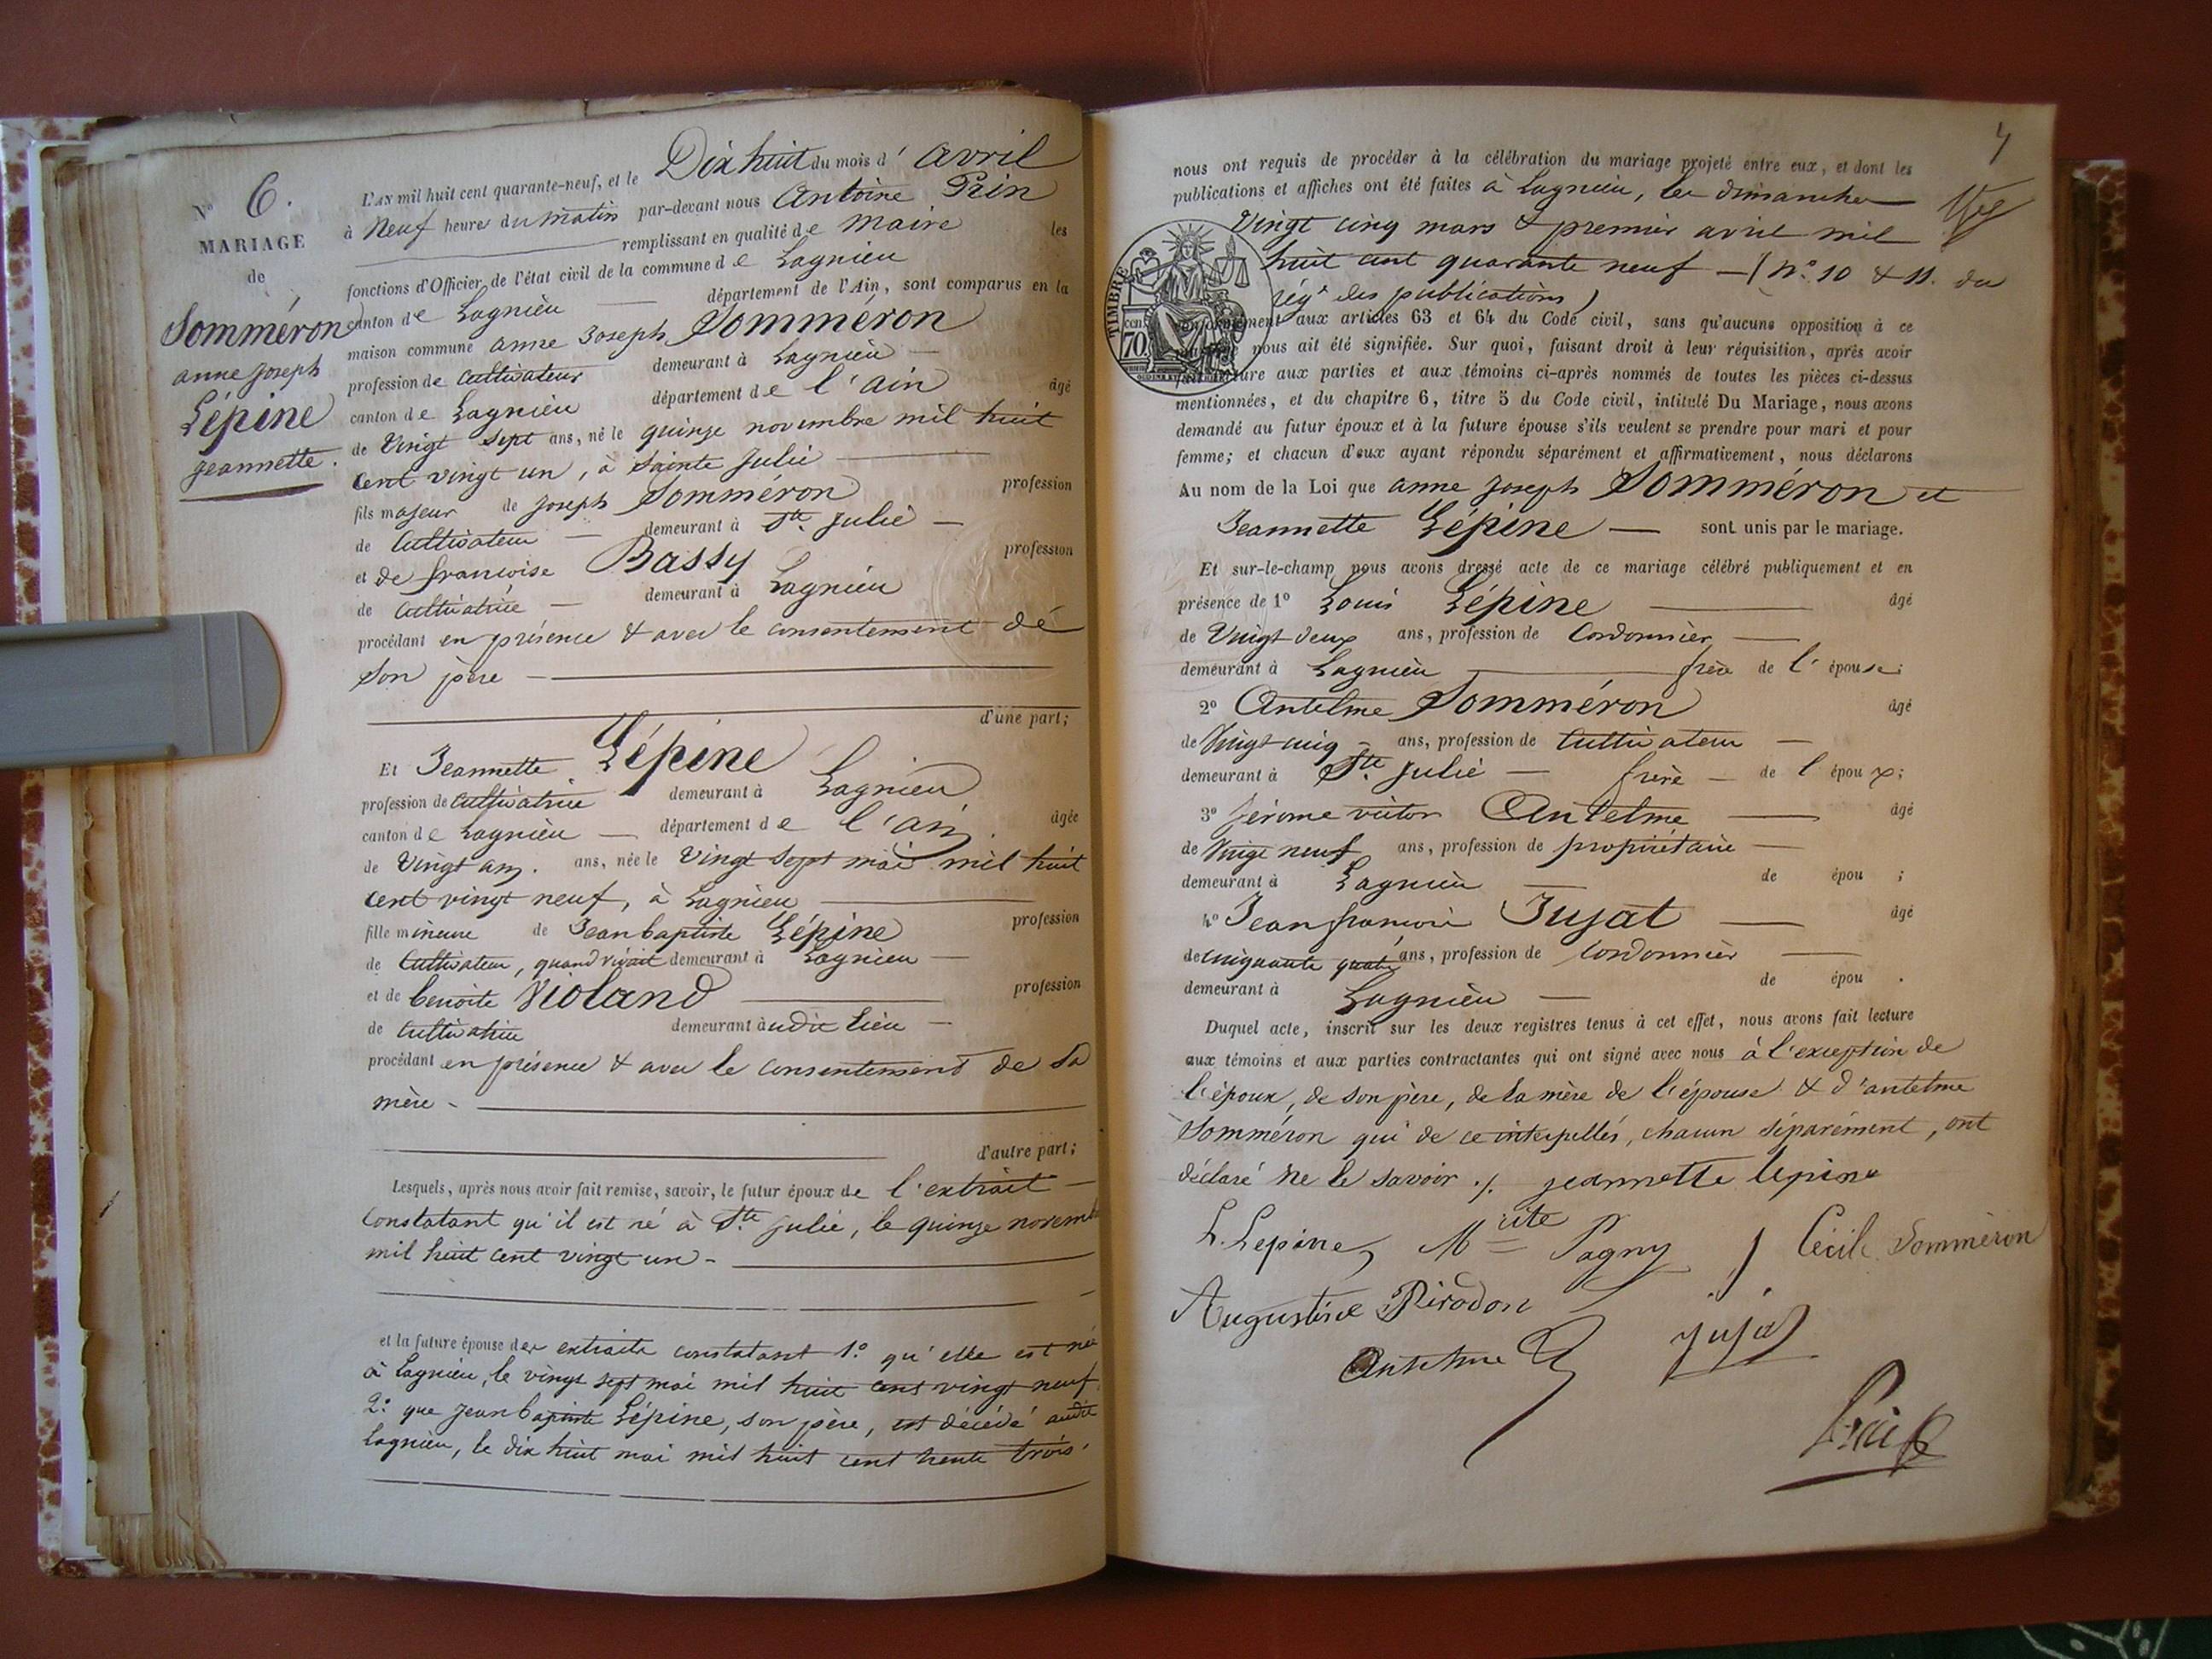 N° 6.
MARIAGE
de
Somméron
anne Joseph
Lépine
Jeannette.
L'AN mil huit cent quarante-neuf, et le Dix huit du mois d' avril
à Neuf heures du matin par-devant nous Antoine Prin
remplissant en qualité de maire les
fonctions d'Officier de l'état civil de la commune de Lagnieu
canton de Lagnieu département de l'Ain, sont comparus en la
maison commune anne Joseph Somméron
profession de Cultivateur demeurant à Lagnieu
canton de Lagnieu département de l'ain âgé
de Vingt sept ans, né le quinze novembre mil huit
cent vingt un, à Sainte Julie
fils majeur de Joseph Somméron profession
de Cultivateur demeurant à Ste Julie
et de francoise Bassy profession
de Cultivatrice demeurant à Lagnieu
procédant en présence & avec le consentement de
son père
d'une part;
Et Jeannette Lépine
profession de Cultivatrice demeurant à Lagnieu
canton de Lagnieu département de l'ain. âgée
de Vingt ans. ans, née le Vingt sept mai mil huit
cent vingt neuf, à Lagnieu
fille mineure de Jean baptiste Lépine profession
de Cultivateur, quand vivait demeurant à Lagnieu
et de benoite Violand profession
de Cultivatrice demeurant à udit lieu
procédant en présence & avec le consentement de sa
mère
d'autre part;
Lesquels, après nous avoir fait remise, savoir, le futur époux de l'extrait
constatant qu'il est né à Ste Julie, le quinze novembre
mil huit cent vingt un
et la future épouse des extraits constatant 1° qu'elle est née
à Lagnieu, le vingt sept mai mil huit cent vingt neuf
2° que Jean baptiste Lépine, son père, est décédé audit
Lagnieu, le dix huit mai mil huit cent trente trois.
nous ont requis de procéder à la célébration du mariage projeté entre eux, et dont les
publications et affiches ont été faites à Lagnieu, les dimanches
Vingt cinq mars & premier avril mil
huit cent quarante neuf (N° 10 & 11. du
régr des publications)
TIMBRE
cen.
70
conformément aux articles 63 et 64 du Code civil, sans qu'aucune opposition à ce
mariage nous ait été signifiée. Sur quoi, faisant droit à leur réquisition, après avoir
fait lecture aux parties et aux témoins ci-après nommés de toutes les pièces ci-dessus
mentionnées, et du chapitre 6, titre 5 du Code civil, intitulé Du Mariage, nous avons
demandé au futur époux et à la future épouse s'ils veulent se prendre pour mari et pour
femme; et chacun d'eux ayant répondu séparément et affirmativement, nous déclarons
Au nom de la Loi que anne Joseph Somméron et
Jeannette Lépine sont unis par le mariage.
Et sur-le-champ nous avons dressé acte de ce mariage célébré publiquement et en
présence de 1° Louis Lépine âgé
de Vingt deux ans, profession de Cordonnier
demeurant à Lagnieu frère de l'épouse;
2° Antelme Somméron âgé
de Vingt cinq ans, profession de Cultivateur
demeurant à Ste Julie frère de l époux;
3° Jérome victor Antelme âgé
de Vingt neuf ans, profession de propriétaire
demeurant à Lagnieu de épou ;
4° Jean francois Jujat âgé
de cinquante quatre ans, profession de Cordonnier
demeurant à Lagnieu de épou .
Duquel acte, inscrit sur les deux registres tenus à cet effet, nous avons fait lecture
aux témoins et aux parties contractantes qui ont signé avec nous à l'exception de
l'époux, de son père, de la mère de l'épouse & d'antelme
Somméron qui de ce interpellés, chacun séparément, ont
déclaré ne le savoir ./. jeannette lepine
L. Lepine Mite Pagny Cécile Somméron
Augustine Pirodon
Antelme jujat
Prin